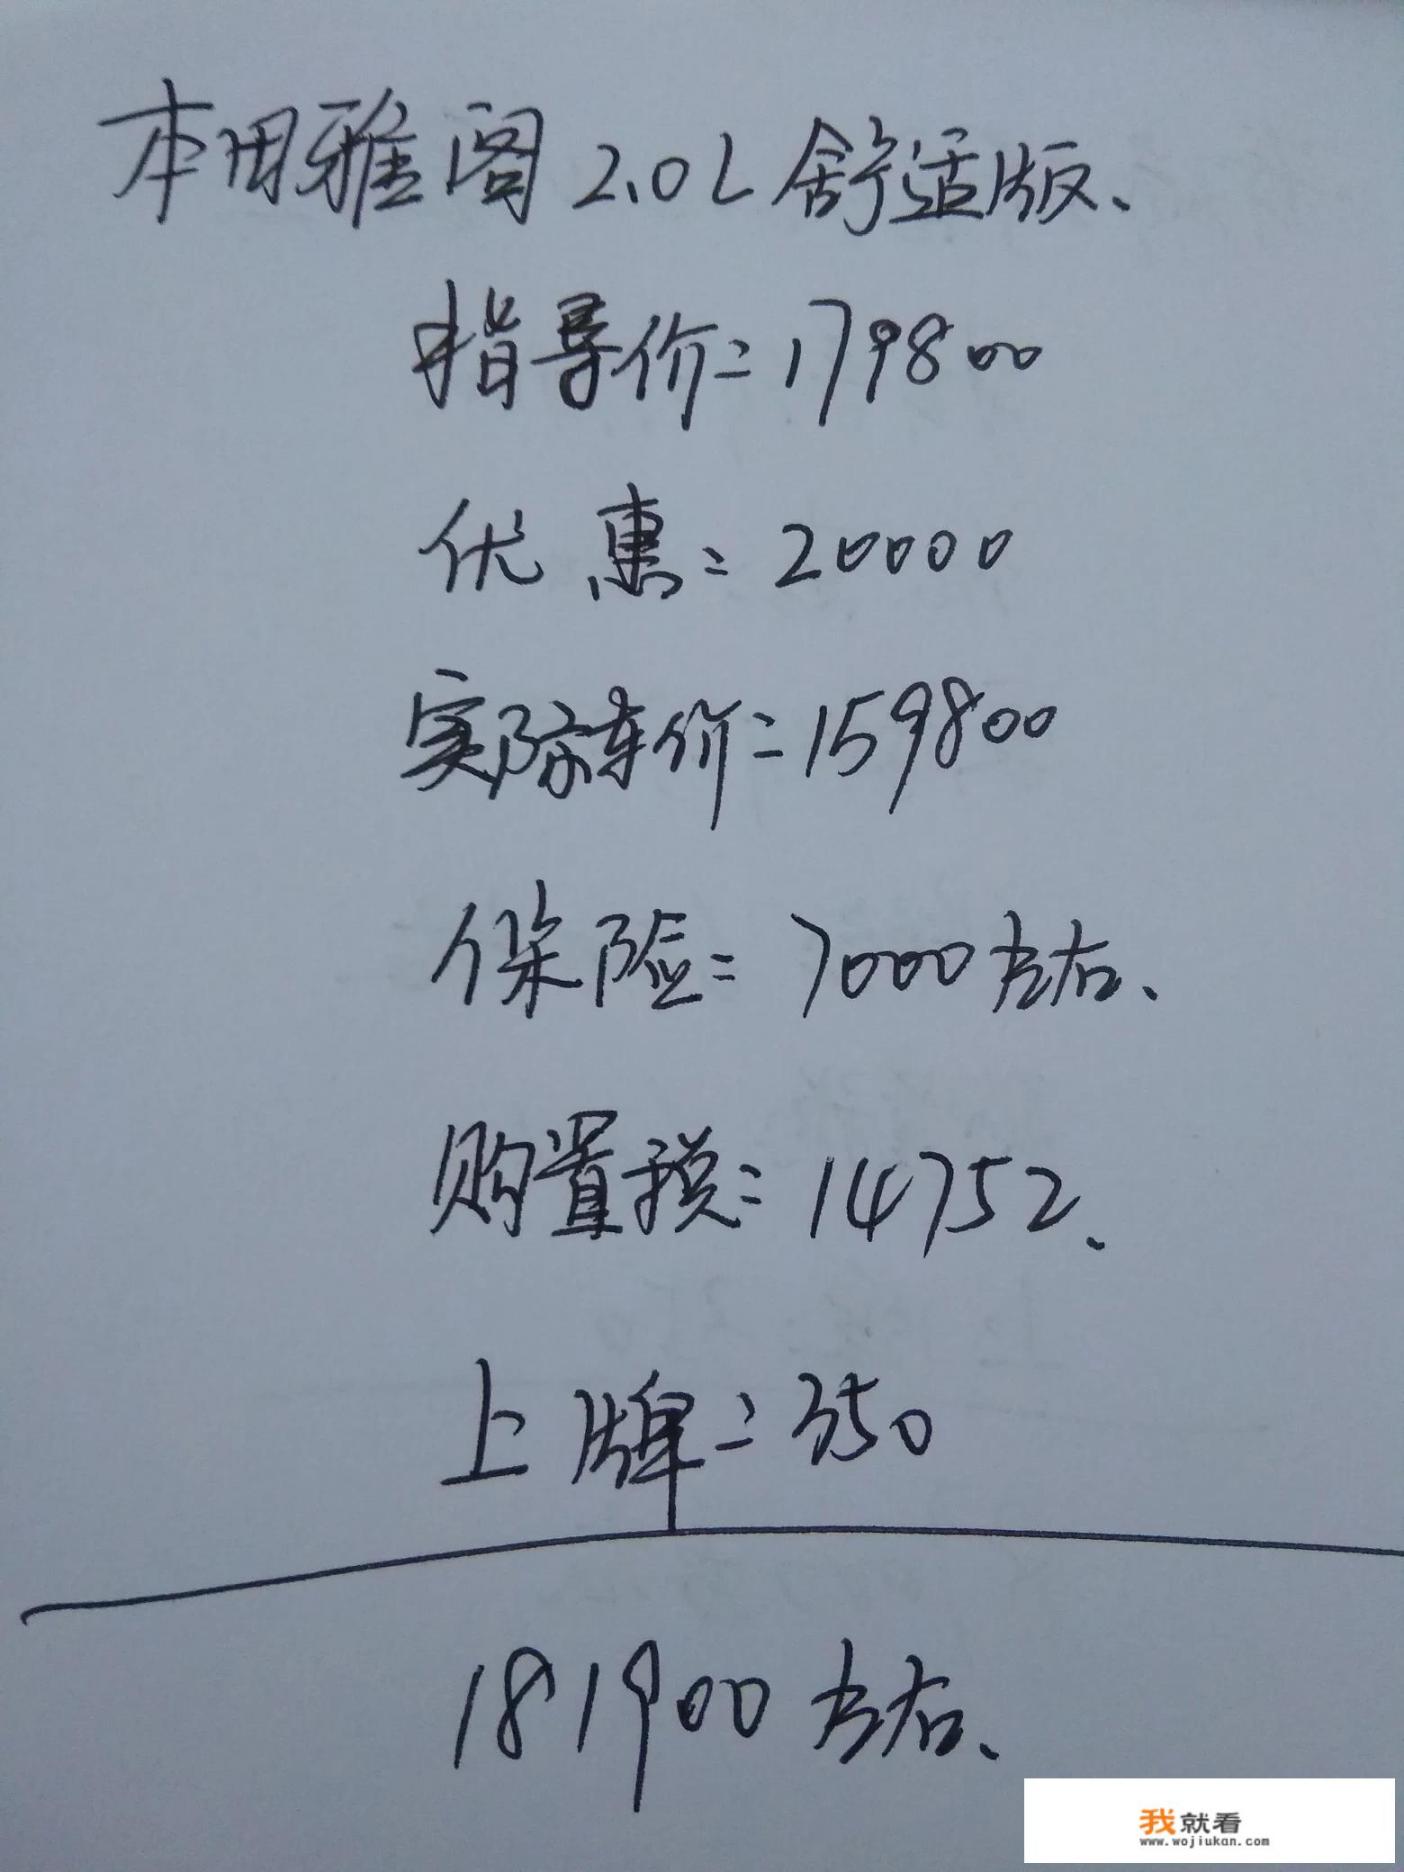 本田雅阁 2.0L 舒适版、
指导价=179800
优惠=20000
实际车价=159800
保险=7000左右、
购置税=14752、
上牌=350
181900左右、
我就看
www.wojiukan.com